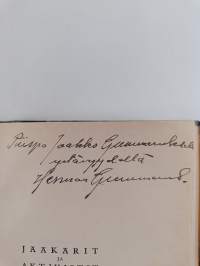 Piispa Jaakko Gummerukselle
ystävyydellä
Herman Gummerus.
JÄÄKÄRIT
JA
AKTIVISTIT